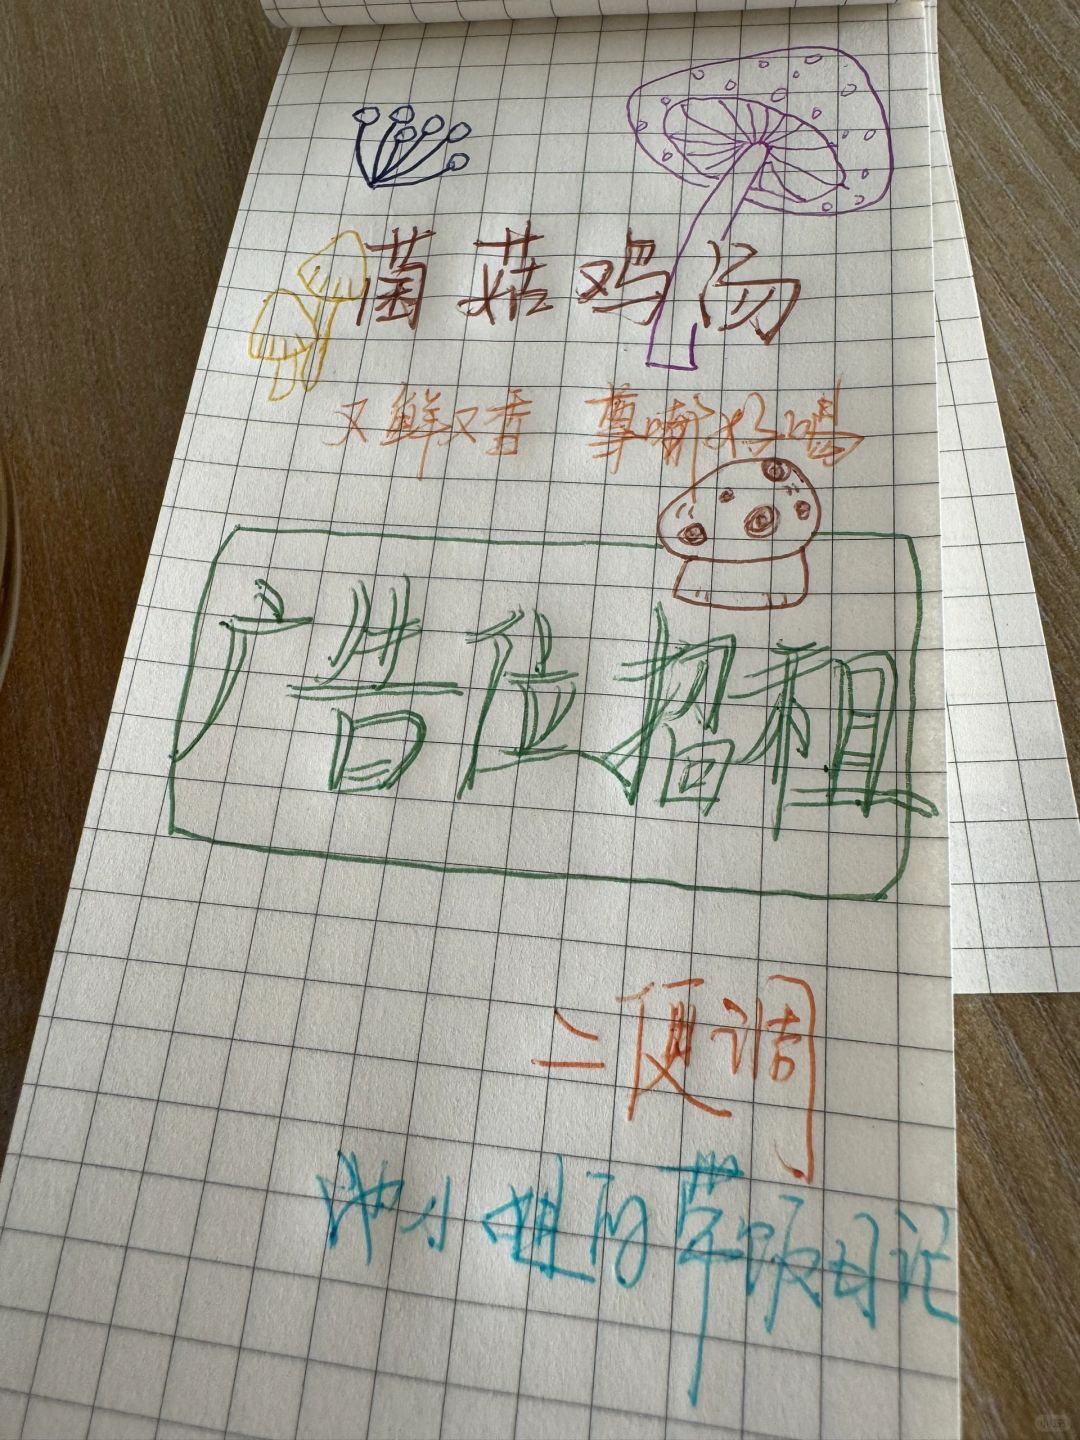 菌菇鸡汤
又鲜又香 尊嘟好喝
广告位招租
二便调
小姐的草饭日记